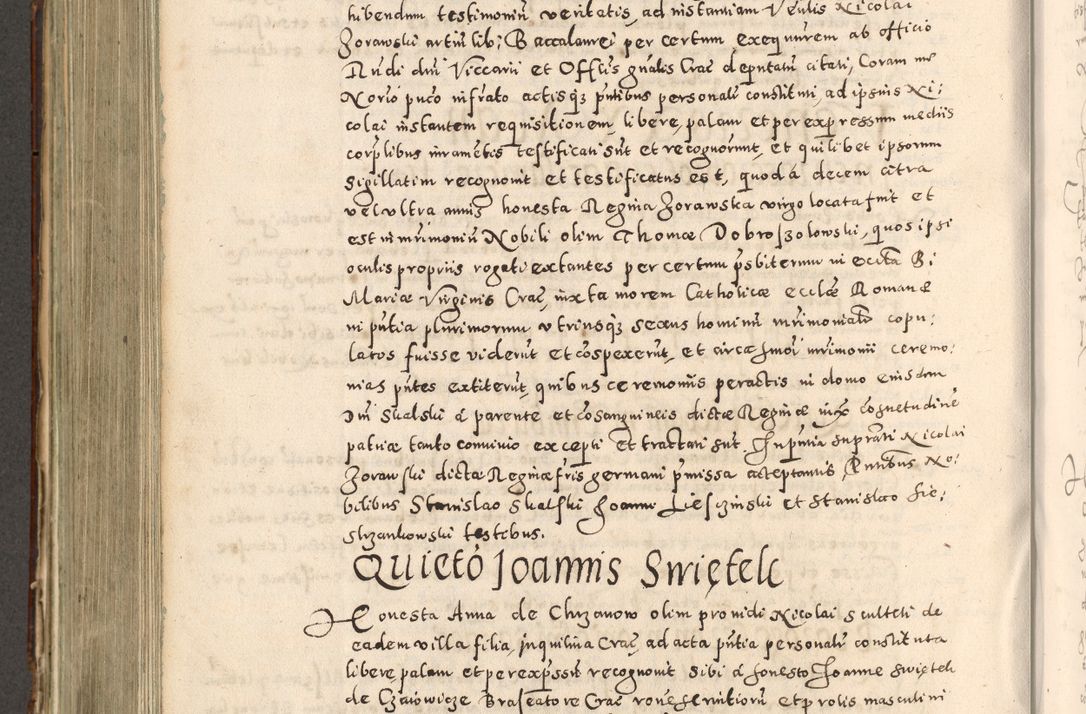 hibendum testimoniũ veritatis, ad instantiam Venlis Nicolai
Zorawski artiũ lib: Baccalaurei per certum exequurem ab officio
Rndi dni Viccarii et Offlis gnalis Crac deputatũ citati, Coram me
Norio puco infrato actisq̃ pntibus personalr constituti, ad ipsius Ni:
colai instantem requisitionem, libere, palam et per expressum mediis
corplibus iuramẽtis testificati sũt et recognorunt, et quilibet ipsorum
sigillatim recognouit et testificatus est, quod a decem citra
vel vltra annis honesta Regina Zorawska virgo locata fuit et
est in mrimoniũ Nobili olim Thomæ Dobroszolowski, quos ipsi
oculis propriis rogati extantes per certum psbiterum in ecclia B:
Mariæ Virginis Crac, iuxta morem Catholicæ ecclæ Romanæ
in pntia plurimorum vtriusq̃ sexus hominũ mrimonialr copu:
latos fuisse viderũt et cõspexerũt, et circa hmoi mrimonii ceremo:
nias pntes extiterũt, quibus ceremoniis peractis in domo eiusdem
Dni Skalski a parente et cõsanguineis dictæ Reginæ iux cõsuetudinẽ
patriæ tanto conuiuio excepti et tractati sũt. In pntia suprati Nicolai
Zorawski dictæ Reginæ fris germani pmissa acceptantis, Pntibus No:
bilibus Stanislao Skalski Joanne Lieszinski et Stanislao Sie:
strzankowski testibus.
Quietõ Joannis Swiętek
Honesta Anna de Chrzanow olim prouidi Nicolai sculteti de
eadem villa filia, inquilina Crac, ad acta pntia personalr constituta
libere, palam et per expssũ recognouit sibi a honesto Joanne Swiętek
de Czaiowicze Braseatore Crac rone seruitiorũ et prolis masculini